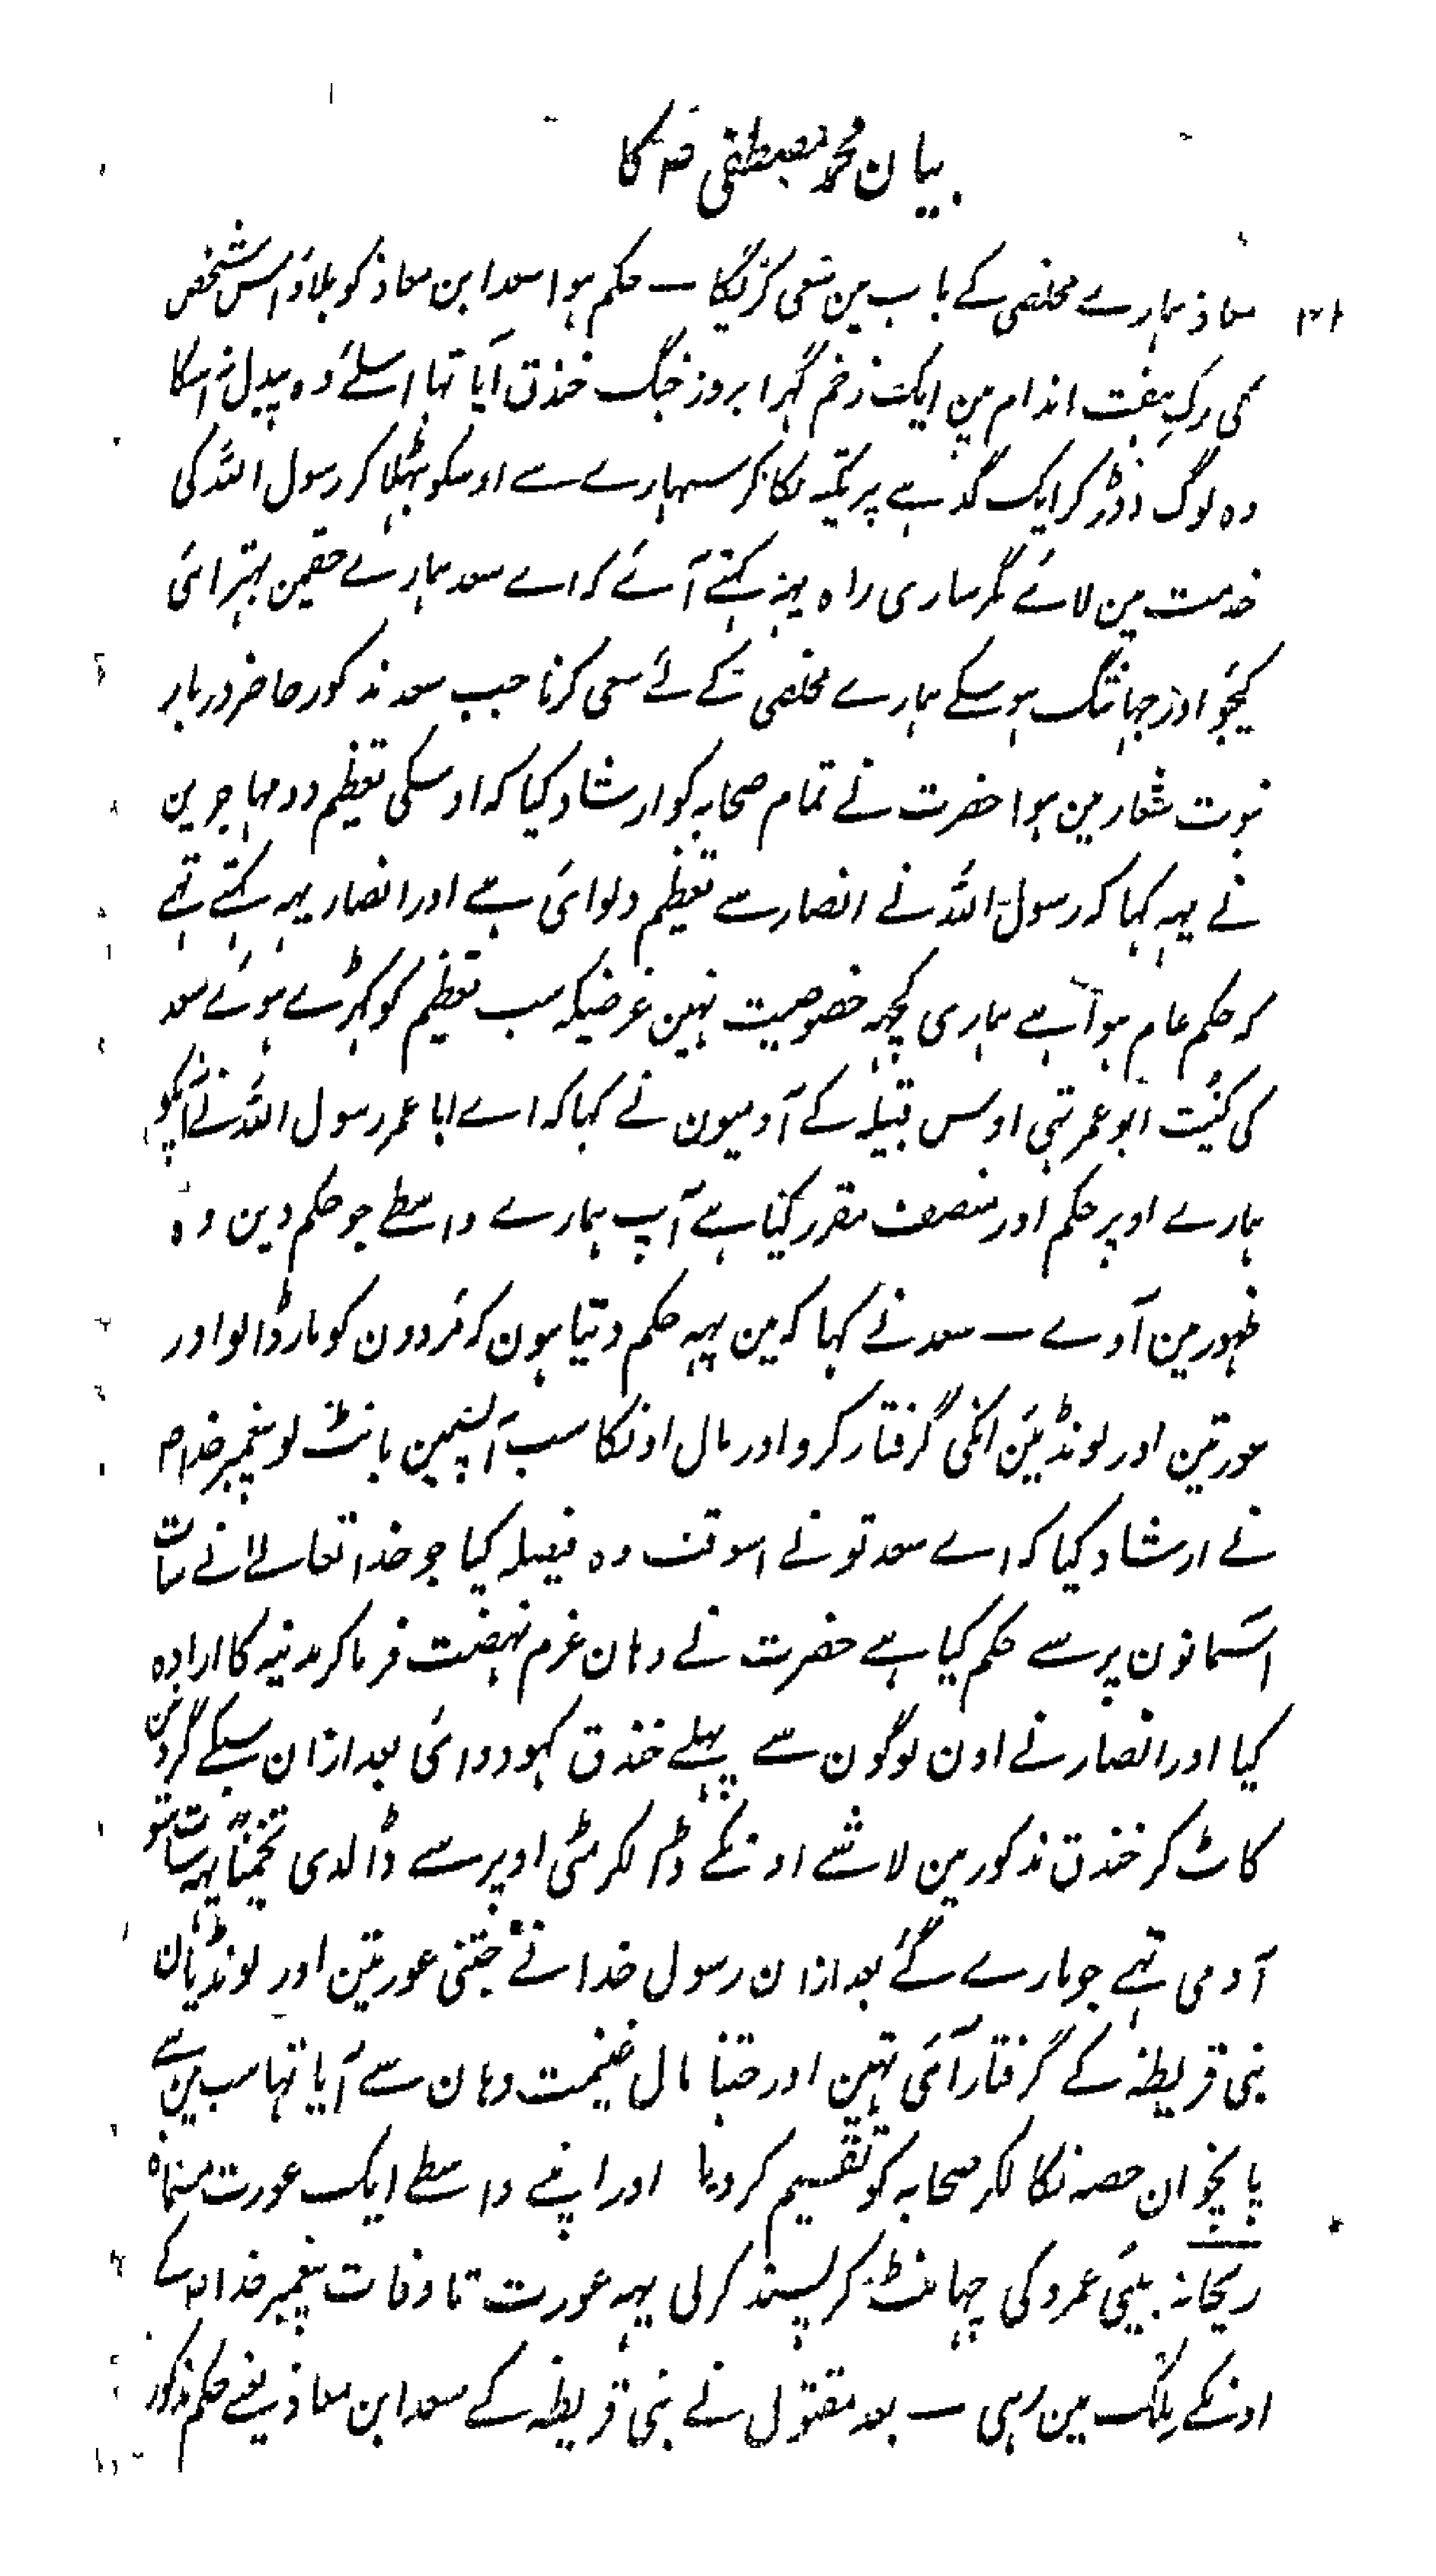 بیان محمد مصطفی ص کا
معاذ ہمارے مخلصی کے باب مین سعی کریگا — حکم ہوا سعد ابن معاذ کو بلاؤ اس شخص
کی رگ ہفت اندام مین ایک زخم گہرا بروز جنگ خندق آیا تہا اسلئے وہ پیدل نہ اسکا
وہ لوگ دوڑ کر ایک گدہے پر تکیہ لگا کر سہارے سے اوسکو بٹہلا کر رسول اللہ کی
خدمت مین لائے مگر ساری راہ یہہ کہتے آئے کہ اے سعد ہمارے حقمین بہتر ائی
کیجو اور جہانتک ہوسکے ہمارے مخلصی کے لئے سعی کرنا جب سعد مذکور حاضر دربار
نبوت شعار مین ہوا حضرت نے تمام صحابہ کو ارشاد کیا کہ اوسکی تعظیم دو مہاجرین
نے یہہ کہا کہ رسول اللہ نے انصار سے تعظیم دلوائی ہے اور انصار یہہ کہتے تہے
کہ حکم عام ہوا ہے ہماری کچہہ خصوصیت نہین غرضیکہ سب تعظیم کو کہڑے ہوئے سعد
کی کنیت ابو عمر تہی اوس قبیلہ کے آدمیون نے کہا کہ اے ابا عمر رسول اللہ نے آپکو
ہمارے اوپر حکم اور منصف مقرر کیا ہے آپ ہمارے واسطے جو حکم دین وہ
ظہور مین آوے — سعد نے کہا کہ مین یہہ حکم دیتا ہون کہ مردون کو مار ڈالو اور
عورتین اور لونڈیئن انکی گرفتار کرو اور مال اونکا سب آپسمین بانٹ لو پیغمبر خدا م
نے ارشاد کیا کہ اے سعد تو نے اسوقت وہ فیصلہ کیا جو خدا تعالے نے سات
آسمانون پر سے حکم کیا ہے حضرت نے وہان عزم نہضت فرما کر مدینہ کا ارادہ
کیا اور انصار نے اون لوگون سے پہلے خندق کہودوائی بعد ازان سبکے گردن
کاٹ کر خندق مذکور مین لاشے اونکے ڈالکر مٹی اوپر سے ڈالدی تخمیناً یہہ سات سو
آدمی تہے جو مارے گئے بعد ازان رسول خدا نے جتنی عورتین اور لونڈیان
بنی قریظہ کے گرفتار آئی تہین اور جتنا مال غنیمت وہان سے آیا تہا سب مین سے
پانچوان حصہ نکالکر صحابہ کو تقسیم کر دیا اور اپنے واسطے ایک عورت مسماۃ
ریحانہ بیٹی عمرو کی چہانٹ کر پسند کرلی یہہ عورت تا وفات پیغمبر خدا م کے
اونکے ملک مین رہی — بعد مقتول نے بنی قریظہ کے سعد ابن معاذ یعنے حکم مذکور